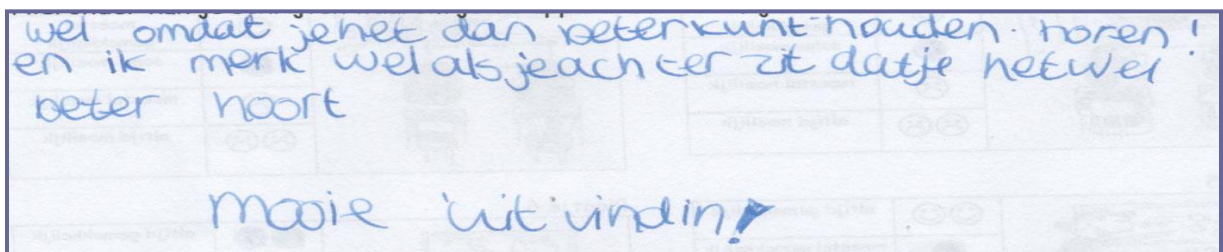 wel omdat je het dan beter kunt houden. horen!
en ik merk wel als je achter zit dat je het wel
beter hoort
Mooie uitvinding!